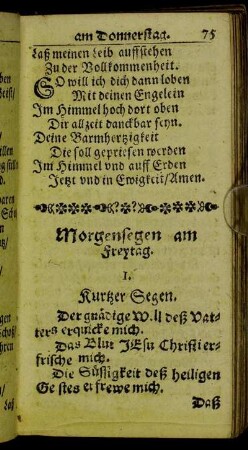 am Donnerstag. 75
Laß meinen Leib auffstehen
Zu der Vollkommenheit.
SO will ich dich dann loben
Mit deinen Engelein
Im Himmel hoch dort oben
Dir allzeit danckbar seyn.
Deine Barmhertzigkeit
Die soll gepriesen werden
Im Himmel vnd auff Erden
Jetzt vnd in Ewigkeit/Amen.
Morgensegen am
Freytag.
1.
Kurtzer Segen.
Der gnädige W.ll deß Vat-
ters erquicke mich.
Das Blut JEsu Christi er-
frische mich.
Die Süssigkeit deß heiligen
Ge stes erfrewe mich.
Daß